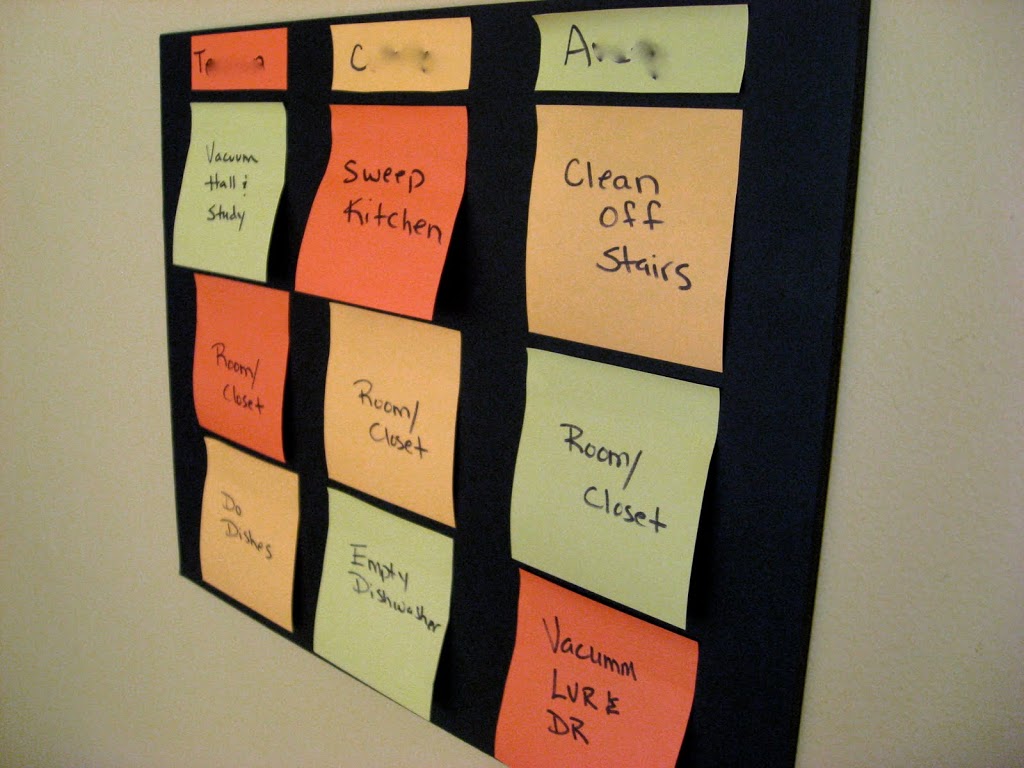 Vacuum
Hall &
Study
Room/
Closet
Do
Dishes
Sweep
Kitchen
Room/
Closet
Empty
Dishwasher
Clean
Off
Stairs
Room/
Closet
Vacumm
LVR &
DR